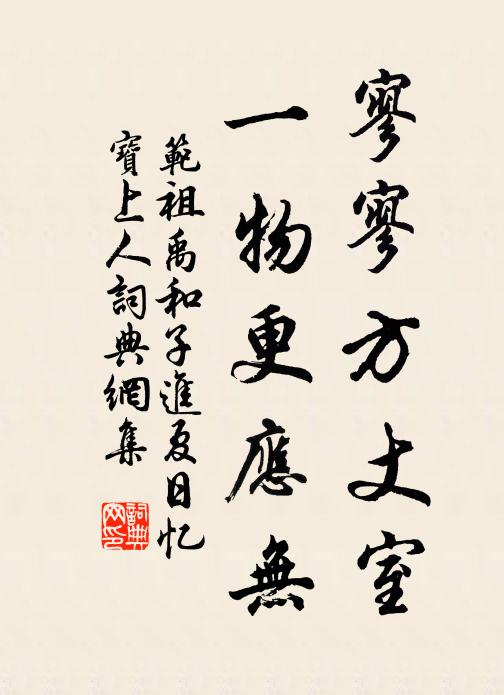 寥寥方丈室
一物更應無
範祖禹和子進夏日忆
寶上人詞典網集
詞典
网印